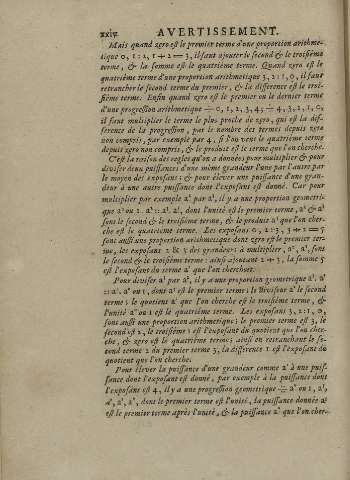 xxiv AVERTISSEMENT.
Mais quand zero est le premier terme d'une proportion arithme-
tique 0, 1 : 2, 1 + 2 = 3, il faut ajouter le second & le troisiéme
terme, & la somme est le quatriéme terme. Quand zero est le
quatriéme terme d'une proportion arithmetique 3, 2 : 1, 0, il faut
retrancher le second terme du premier, & la difference est le troi-
siéme terme. Enfin quand zero est le premier ou le dernier terme
d'une progression arithmetique ÷ 0, 1, 2, 3, 4; ÷ 4, 3, 2, 1, 0,
il faut multiplier le terme le plus proche de zero, qui est la dif-
ference de la progression, par le nombre des termes depuis zero
non compris, par exemple par 4, si l'on veut le quatriéme terme
depuis zero non compris, & le produit est le terme que l'on cherche.
C'est la raison des regles qu'on a données pour multiplier & pour
diviser deux puissances d'une même grandeur l'une par l'autre par
le moyen des exposans : & pour élever une puissance d'une gran-
deur à une autre puissance dont l'exposant est donné. Car pour
multiplier par exemple a² par a³, il y a une proportion geometri-
que a⁰ ou 1. a² :: a³. a⁵, dont l'unité est le premier terme, a² & a³
sont le second & le troisiéme terme, & le produit a⁵ que l'on cher-
che est le quatriéme terme. Les exposans 0, 2 : 3, 3 + 2 = 5
sont aussi une proportion arithmetique dont zero est le premier ter-
me, les exposans 2 & 3 des grandeurs à multiplier, a², a³, sont
le second & le troisiéme terme : ainsi ajoutant 2 + 3, la somme 5
est l'exposant du terme a⁵ que l'on cherchoit.
Pour diviser a³ par a², il y a une proportion geometrique a³. a²
:: a¹. a⁰ ou 1, dont a³ est le premier terme; le diviseur a² le second
terme; le quotient a¹ que l'on cherche est le troisiéme terme, &
l'unité a⁰ ou 1 est le quatriéme terme. Les exposans 3, 2 : 1, 0,
sont aussi une proportion arithmetique : le premier terme est 3, le
second est 2, le troisiéme 1 est l'exposant du quotient que l'on cher-
che, & zero est le quatriéme terme; ainsi en retranchant le se-
cond terme 2 du premier terme 3, la difference 1 est l'exposant du
quotient que l'on cherche.
Pour élever la puissance d'une grandeur comme a² à une puis-
sance dont l'exposant est donné, par exemple à la puissance dont
l'exposant est 4, il y a une progression geometrique ÷ a⁰ ou 1, a²,
a⁴, a⁶, a⁸, dont le premier terme est l'unité, la puissance donnée a²
est le premier terme après l'unité, & la puissance a⁸ que l'on cher-